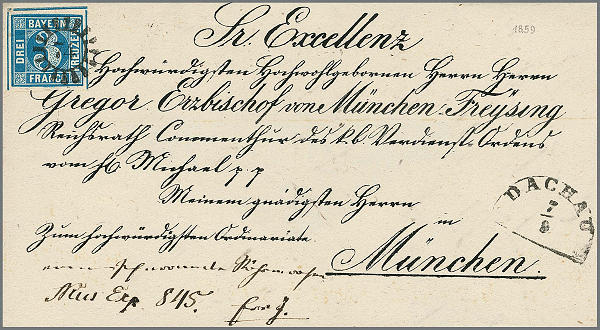 Sr. Excellenz
1859
BAYERN
DREI
KREUZER
FRANCO
Hochwürdigsten Hochwohlgebornen Herrn Herrn
Gregor Erzbischof von München-Freysing
Reichsrath Commenthur des k. b. Verdienst-Ordens
vom hl. Michael p. p.
Meinem gnädigsten Herrn
DACHAU
7
8
in
Zum hochwürdigsten Ordinariate
München.
Nus Exp. 845.